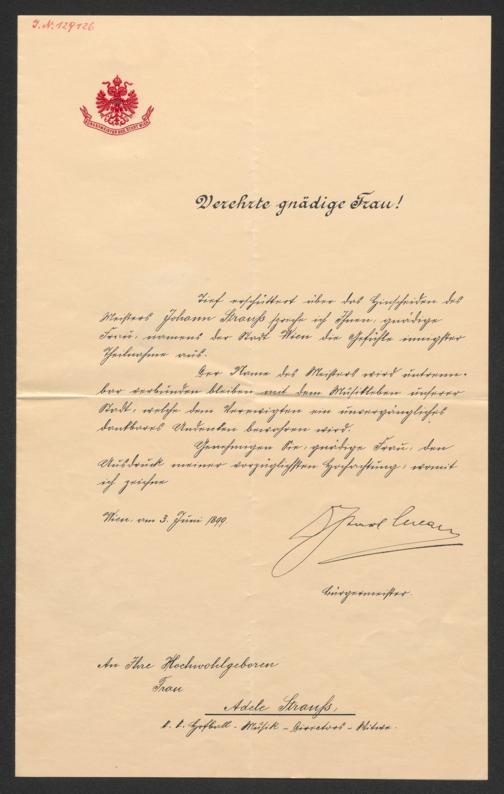 J. N. 129126
BÜRGERMEISTER DER STADT WIEN
Verehrte gnädige Frau!
Tief erschüttert über das Hinscheiden des
Meisters Johann Strauß spreche ich Ihnen, gnädige
Frau, namens der Stadt Wien die Gefühle innigster
Theilnahme aus.
Der Name des Meisters wird untrenn-
bar verbunden bleiben mit dem Musikleben unserer
Stadt, welche dem Verewigten ein unvergängliches
dankbares Andenken bewahren wird.
Genehmigen Sie, gnädige Frau, den
Ausdruck meiner vorzüglichsten Hochachtung, womit
ich zeichne
Wien, am 3. Juni 1899.
Karl Lueger
Bürgermeister.
An Ihre Hochwohlgeboren
Frau
Adele Strauß,
k. k. Hofball-Musik-Directors-Witwe.